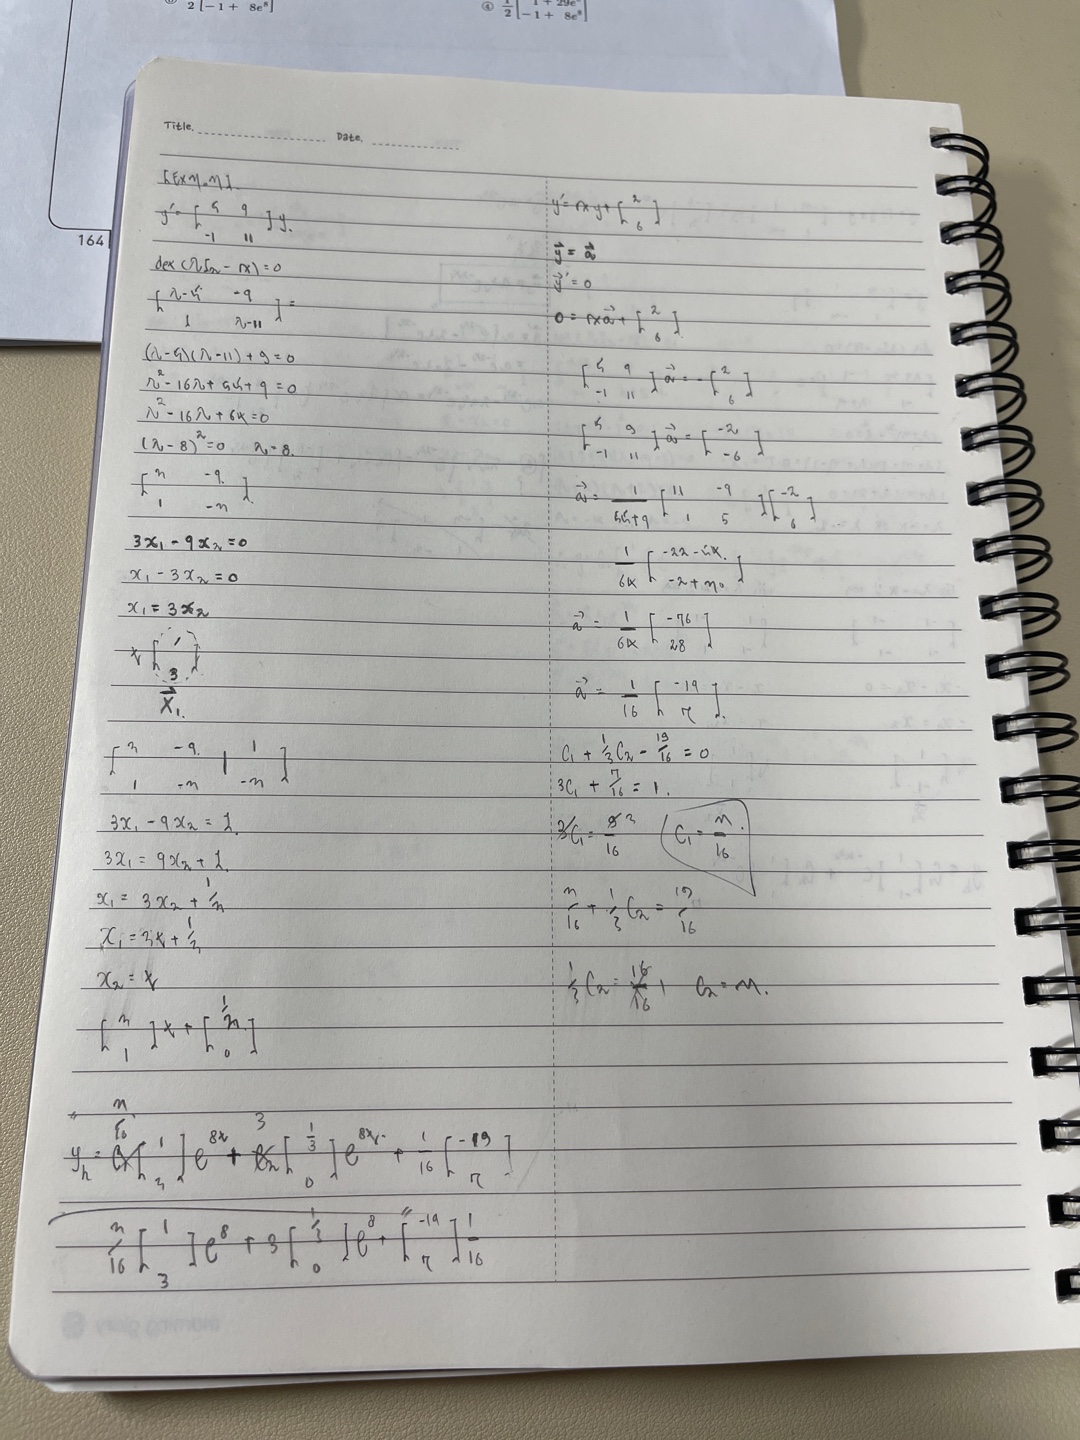 2 [ -1 + 8e⁸ ]
④ 1/2 [ 1 + 29e⁸
-1 + 8e⁸ ]
164
Title. Date.
y' = [ 5 9
-1 11 ] y.
(λI₂ - ) = 0
[ λ-5 -9
1 λ-11 ] =
(λ-5)(λ-11) + 9 = 0
λ² - 16λ + 55 + 9 = 0
λ² - 16λ + 64 = 0
(λ-8)² = 0 λ=8.
[ 3 -9
1 -3 ]
3x₁ - 9x₂ = 0
x₁ - 3x₂ = 0
x₁ = 3x₂
t [ 1
3 ]
X₁.
[ 3 -9 | 1
1 -3 | -3 ]
3x₁ - 9x₂ = 1.
3x₁ = 9x₂ + 1.
x₁ = 3x₂ + 1/3
x₁ = 3t + 1/3
x₂ = t
[ 3
1 ] t + [ 1/3
0 ]
[ 1
3 ] e^8t + 3 [ 1/3
0 ] e^8t + 1/16 [ -19
7 ]
3/16 [ 1
3 ] e⁸ + 3 [ 1/3
0 ] e⁸ + [ -19
7 ] 1/16
y' = y + [ 2
6 ]
y = a
y' = 0
0 = a + [ 2
6 ]
[ 5 9
-1 11 ] a = - [ 2
6 ]
[ 5 9
-1 11 ] a = [ -2
-6 ]
a = 1/55+9 [ 11 -9
1 5 ] [ -2
6 ]
1/64 [ -22 - 54.
-2 + 30 ]
a = 1/64 [ -76
28 ]
a = 1/16 [ -19
7 ].
C₁ + 1/3 C₂ - 19/16 = 0
3C₁ + 7/16 = 1.
3C₁ = 9/16 C₁ = 3/16
3/16 + 1/3 C₂ = 19/16
1/3 C₂ = 16/16 1 C₂ = 3.
morning glory